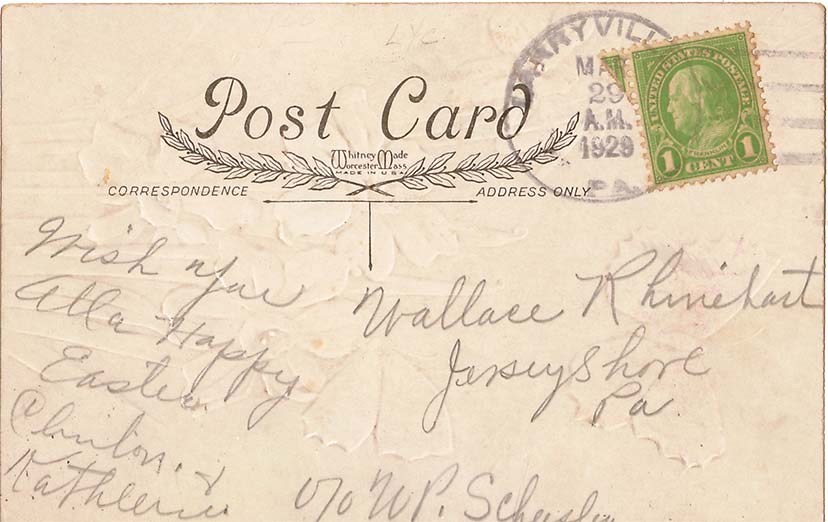 LYC
Post Card
Whitney Made
Worcester Mass
MADE IN USA
CORRESPONDENCE
ADDRESS ONLY
RRYVILL
MA
29
A.M.
1929
PA.
UNITED STATES POSTAGE
FRANKLIN
1 CENT 1
Wish you
All a Happy
Easter
Clinton &
Kathlerine
Wallace Rhinehart
Jersey Shore
Pa
c/o W P.